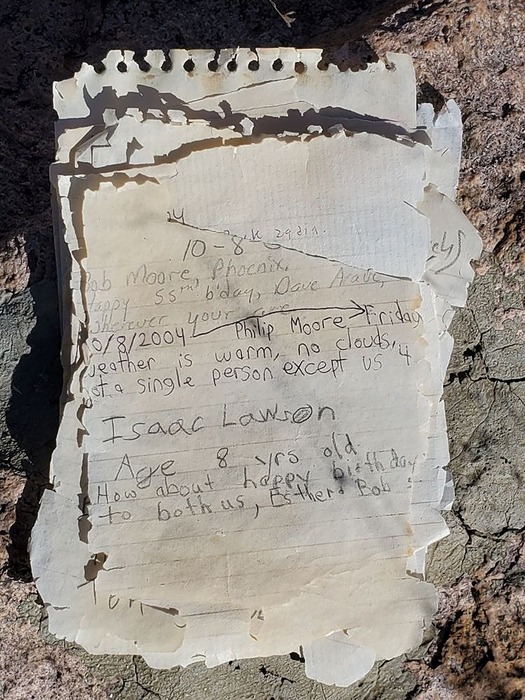 again.
10-8
Bob Moore, Phoenix.
Happy 55th b'day, Dave
wherever your
10/8/2004 Philip Moore Friday
weather is warm, no clouds,
not a single person except us 4
Isaac Lawson
Age 8 yrs old
How about happy birthday
to both us, Esther & Bob